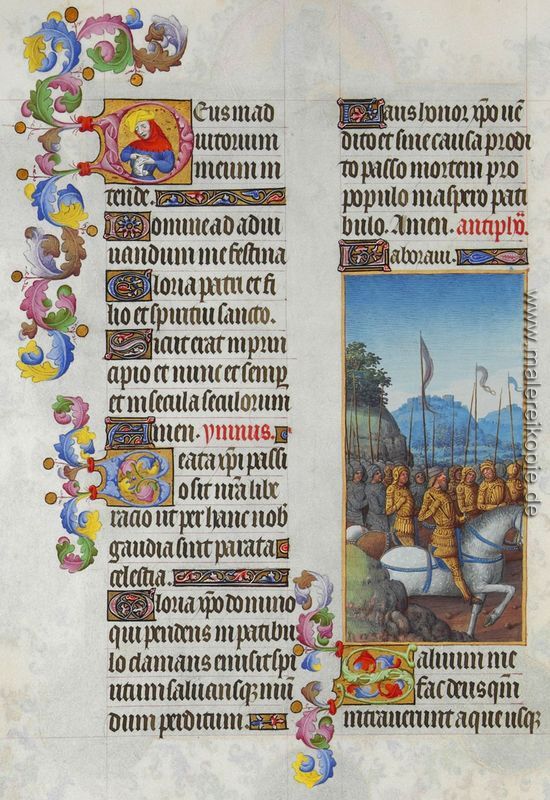 Deus in ad
iutorium
meum in
tende.
Domine ad adiu
uandum me festina
Gloria patri et fi
lio et spiritui sancto.
Sicut erat in prin
cipio et nunc et semper
et in secula seculorum
Amen. ymnus.
Beata xpi passi
o sit nra libe
racio ut per hanc nob
gaudia sint parata
celestia.
Gloria xpo domino
qui pendens in patibu
lo clamans emisit spi
ritum saluansque mun
dum perditum.
Laus honor xpo uen
dito et sine causa prodi
to passo mortem pro
populo in aspero pati
bulo. Amen. antipho.
Laboraui.
Saluum me
fac deus qm
intrauerunt aque usque
www.malereikopie.de